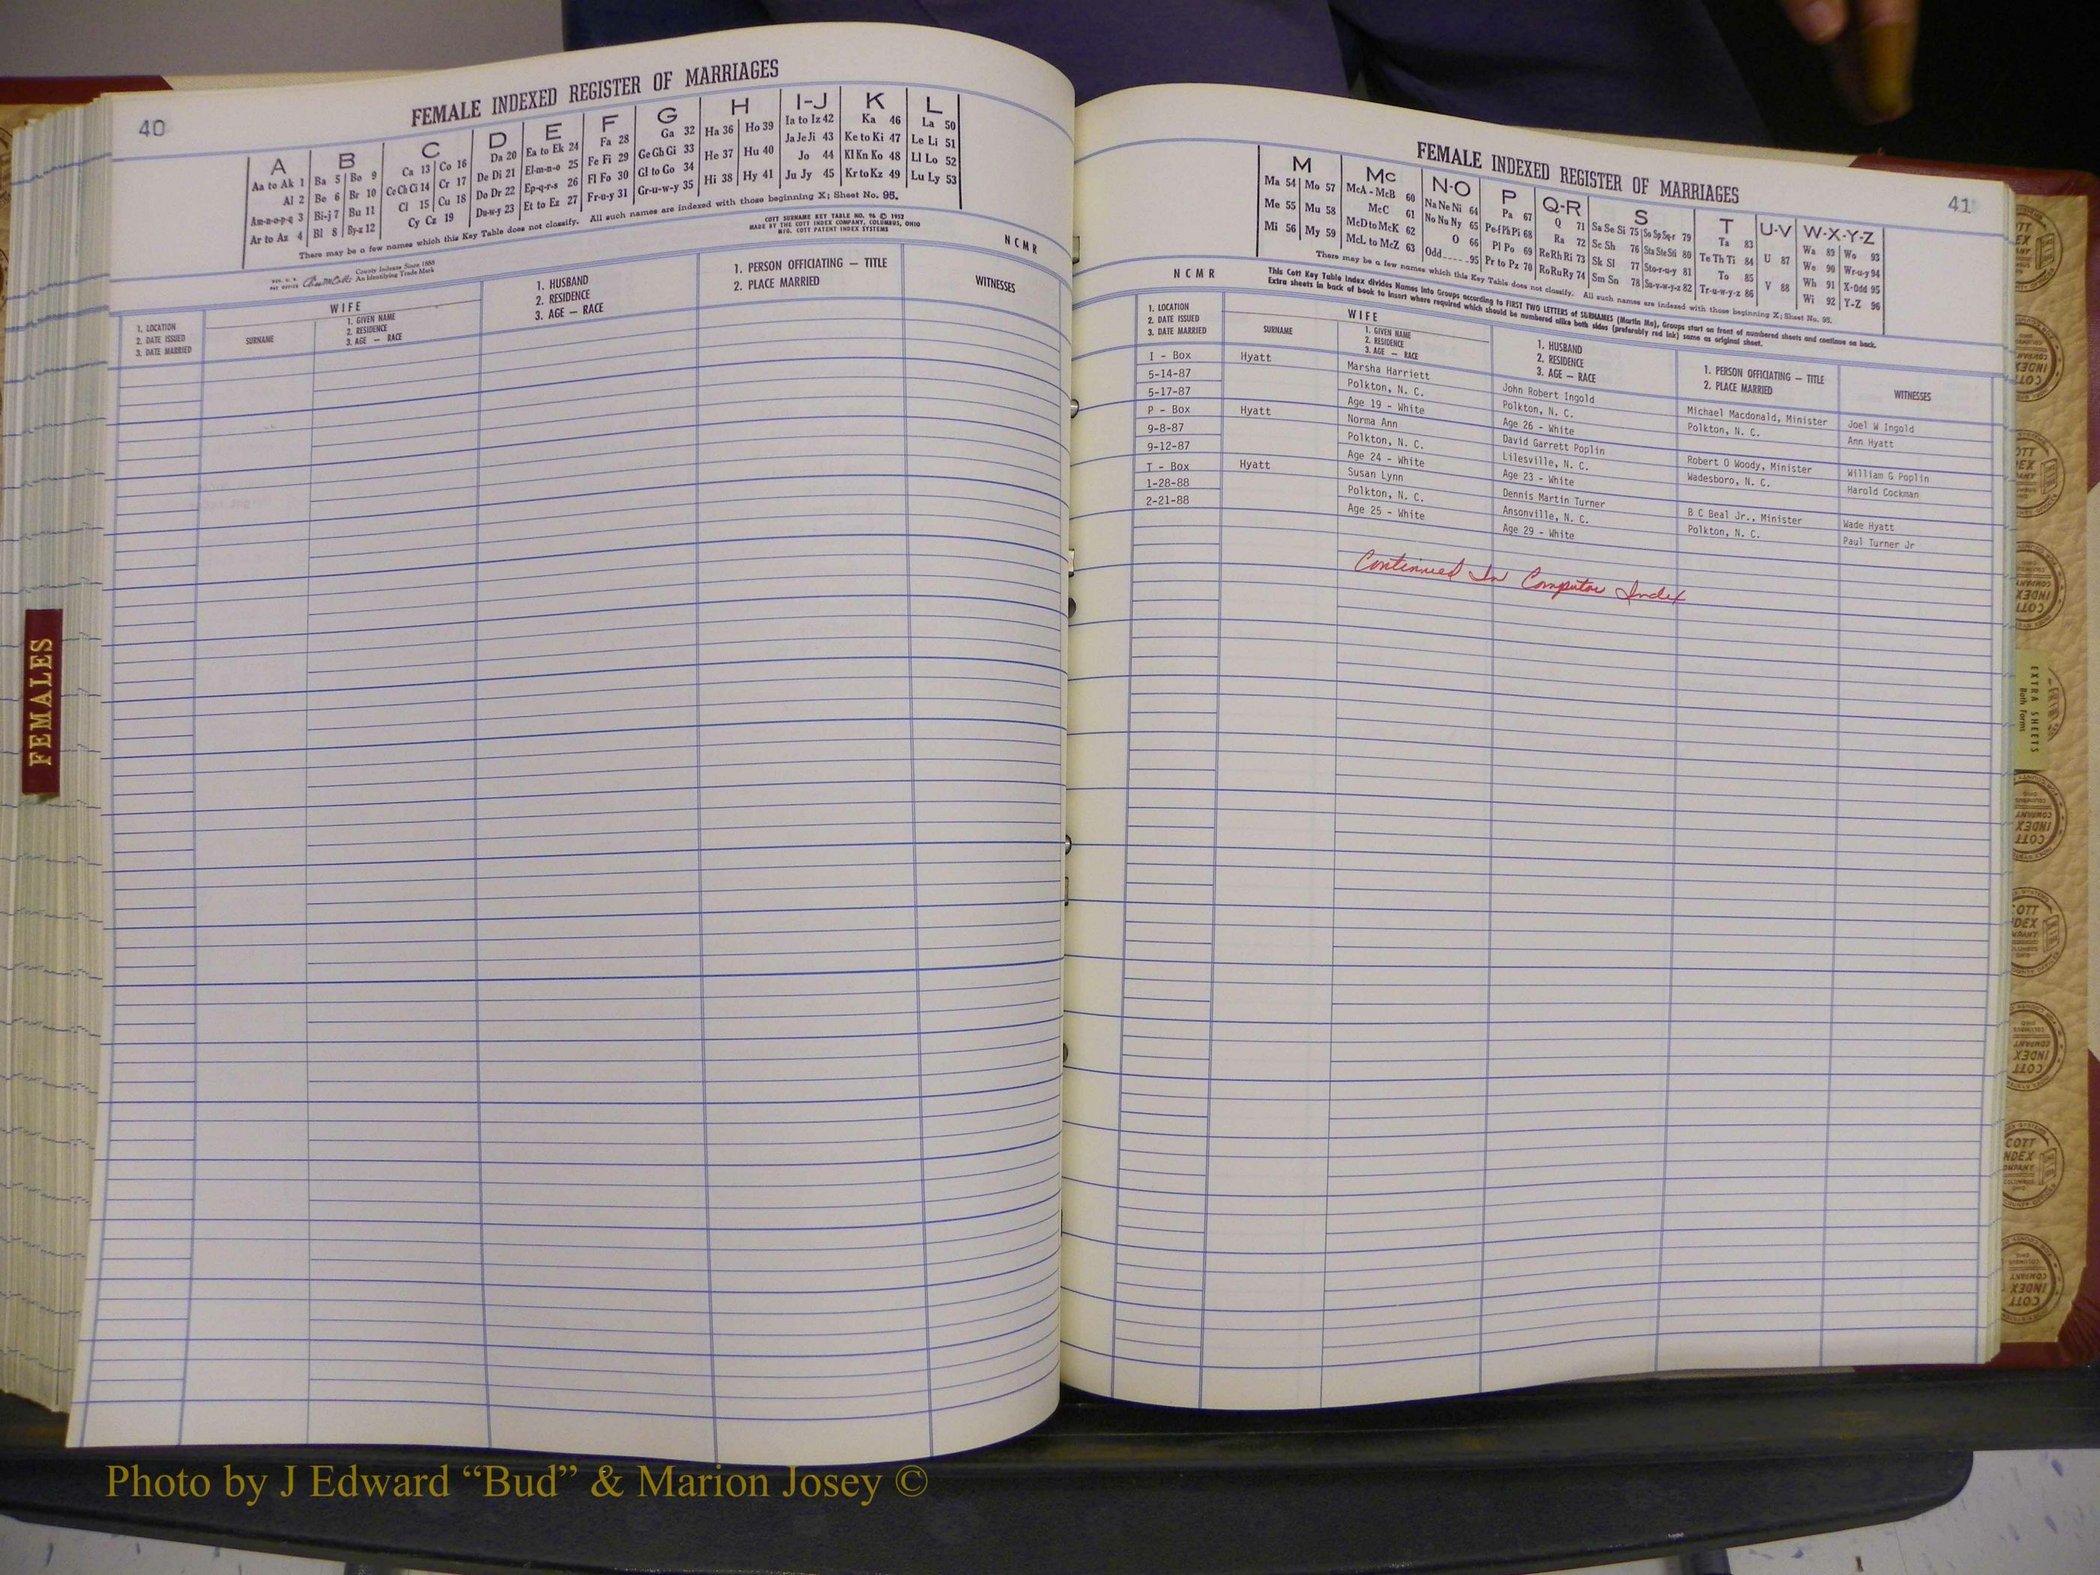 40
FEMALE INDEXED REGISTER OF MARRIAGES
A B C D E F G H I-J K L
Aa to Ak 1 Ba 5 Bo 9 Ca 13 Co 16 Da 20 Ea to Ek 24 Fa 28 Ga 32 Ha 36 Ho 39 Ia to Iz 42 Ka 46 La 50
Al 2 Be 6 Br 10 Ce Ch Ci 14 Cr 17 De Di 21 El-m-n-o 25 Fe Fi 29 Ge Gh Gi 33 He 37 Hu 40 Ja Je Ji 43 Ke to Ki 47 Le Li 51
Am-n-o-p-q 3 Bi-j 7 Bu 11 Cl 15 Cu 18 Do Dr 22 Ep-q-r-s 26 Fl Fo 30 Gl to Go 34 Hi 38 Hy 41 Jo 44 Kl Kn Ko 48 Ll Lo 52
Ar to Az 4 Bl 8 By-z 12 Cy Cz 19 Du-w-y 23 Et to Ez 27 Fr-u-y 31 Gr-u-w-y 35 Ju Jy 45 Kr to Kz 49 Lu Ly 53
There may be a few names which this Key Table does not classify. All such names are indexed with those beginning X; Sheet No. 95.
COTT SURNAME KEY TABLE NO. 96 © 1952
MADE BY THE COTT INDEX COMPANY, COLUMBUS, OHIO
MFG. COTT PATENT INDEX SYSTEMS
County Indexes Since 1888
An Identifying Trade Mark
NCMR
1. LOCATION
2. DATE ISSUED
3. DATE MARRIED
WIFE
SURNAME
1. GIVEN NAME
2. RESIDENCE
3. AGE — RACE
1. HUSBAND
2. RESIDENCE
3. AGE — RACE
1. PERSON OFFICIATING — TITLE
2. PLACE MARRIED
WITNESSES
FEMALES
FEMALE INDEXED REGISTER OF MARRIAGES
41
M Mc N-O P Q-R S T U-V W-X-Y-Z
Ma 54 Mo 57 McA - McB 60 Na Ne Ni 64 Pa 67 Q 71 Sa Se Si 75 So Sp Sq-r 79 Ta 83 U 87 Wa 89 Wo 93
Me 55 Mu 58 McC 61 No Nu Ny 65 Pe-f Ph Pi 68 Ra 72 Sc Sh 76 Sta Ste Sti 80 Te Th Ti 84 V 88 We 90 Wr-u-y 94
Mi 56 My 59 McD to McK 62 O 66 Pl Po 69 Re Rh Ri 73 Sk Sl 77 Sto-r-u-y 81 To 85 Wh 91 X-Odd 95
McL to McZ 63 Odd 95 Pr to Pz 70 Ro Ru Ry 74 Sm Sn 78 Su-v-w-y-z 82 Tr-u-w-y-z 86 Wi 92 Y-Z 96
There may be a few names which this Key Table does not classify. All such names are indexed with those beginning X; Sheet No. 95.
NCMR
This Cott Key Table Index divides Names into Groups according to FIRST TWO LETTERS of SURNAMES (Martin Ma), Groups start on front of numbered sheets and continue on back.
Extra sheets in back of book to insert where required which should be numbered alike both sides (preferably red ink) same as original sheet.
1. LOCATION
2. DATE ISSUED
3. DATE MARRIED
WIFE
SURNAME
1. GIVEN NAME
2. RESIDENCE
3. AGE — RACE
1. HUSBAND
2. RESIDENCE
3. AGE — RACE
1. PERSON OFFICIATING — TITLE
2. PLACE MARRIED
WITNESSES
I - Box Hyatt Marsha Harriett John Robert Ingold Michael Macdonald, Minister Joel W Ingold
5-14-87 Polkton, N. C. Polkton, N. C. Polkton, N. C. Ann Hyatt
5-17-87 Age 19 - White Age 26 - White
P - Box Hyatt Norma Ann David Garrett Poplin Robert O Woody, Minister William G Poplin
9-8-87 Polkton, N. C. Lilesville, N. C. Wadesboro, N. C. Harold Cockman
9-12-87 Age 24 - White Age 23 - White
T - Box Hyatt Susan Lynn Dennis Martin Turner B C Beal Jr., Minister Wade Hyatt
1-28-88 Polkton, N. C. Ansonville, N. C. Polkton, N. C. Paul Turner Jr
2-21-88 Age 25 - White Age 29 - White
Continued In Computer Index
EXTRA SHEETS
Both Forms
COTT INDEX COMPANY
Photo by J Edward “Bud” & Marion Josey ©